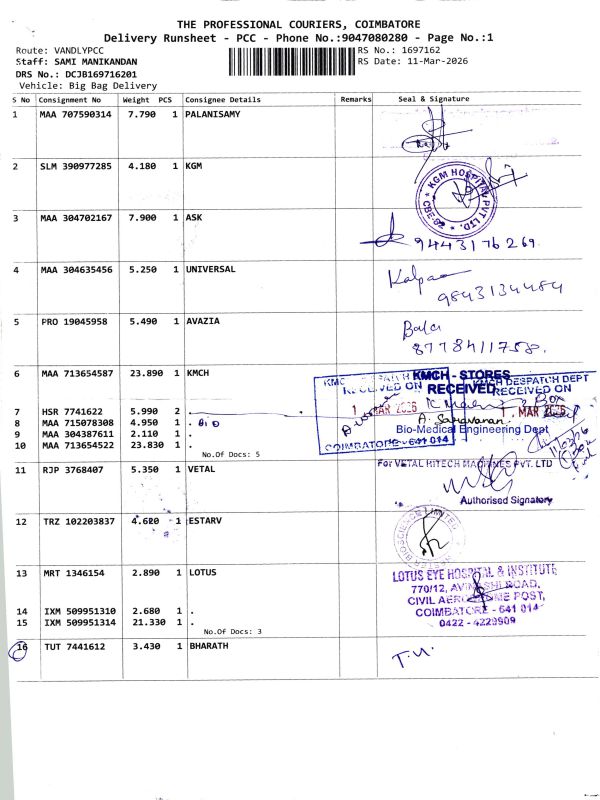 THE PROFESSIONAL COURIERS, COIMBATORE
Delivery Runsheet - PCC - Phone No.:9047080280 - Page No.:1
Route: VANDLYPCC
RS No.: 1697162
Staff: SAMI MANIKANDAN
RS Date: 11-Mar-2026
DRS No.: DCJB169716201
Vehicle: Big Bag Delivery
S No Consignment No Weight PCS Consignee Details Remarks Seal & Signature
1 MAA 707590314 7.790 1 PALANISAMY
2 SLM 390977285 4.180 1 KGM
KGM HOSPITAL PVT LTD. * CBE-62 *
3 MAA 304702167 7.900 1 ASK
9443176269.
4 MAA 304635456 5.250 1 UNIVERSAL
Kalpaa
9843134484
5 PRO 19045958 5.490 1 AVAZIA
Bala
8778411758.
6 MAA 713654587 23.890 1 KMCH
KMCH - STORES
RECEIVED
KMCH DESPATCH DEPT
RECEIVED ON
RECEIVED ON
MAR 2026
1 MAR
7 HSR 7741622 5.990 2 .
8 MAA 715078308 4.950 1 . BiO
A. Saravanan.
9 MAA 304387611 2.110 1 .
Bio-Medical Engineering Dept
10 MAA 713654522 23.830 1 .
COIMBATORE - 641 014
11/03/26
No.Of Docs: 5
11 RJP 3768407 5.350 1 VETAL
For VETAL HITECH MACHINES PVT. LTD
Authorised Signatory
12 TRZ 102203837 4.620 1 ESTARV
13 MRT 1346154 2.890 1 LOTUS
LOTUS EYE HOSPITAL & INSTITUTE
770/12, AVINASHI ROAD,
CIVIL AERODROME POST,
COIMBATORE - 641 014
0422 - 4229909
14 IXM 509951310 2.680 1 .
15 IXM 509951314 21.330 1 .
No.Of Docs: 3
16 TUT 7441612 3.430 1 BHARATH
T.U.